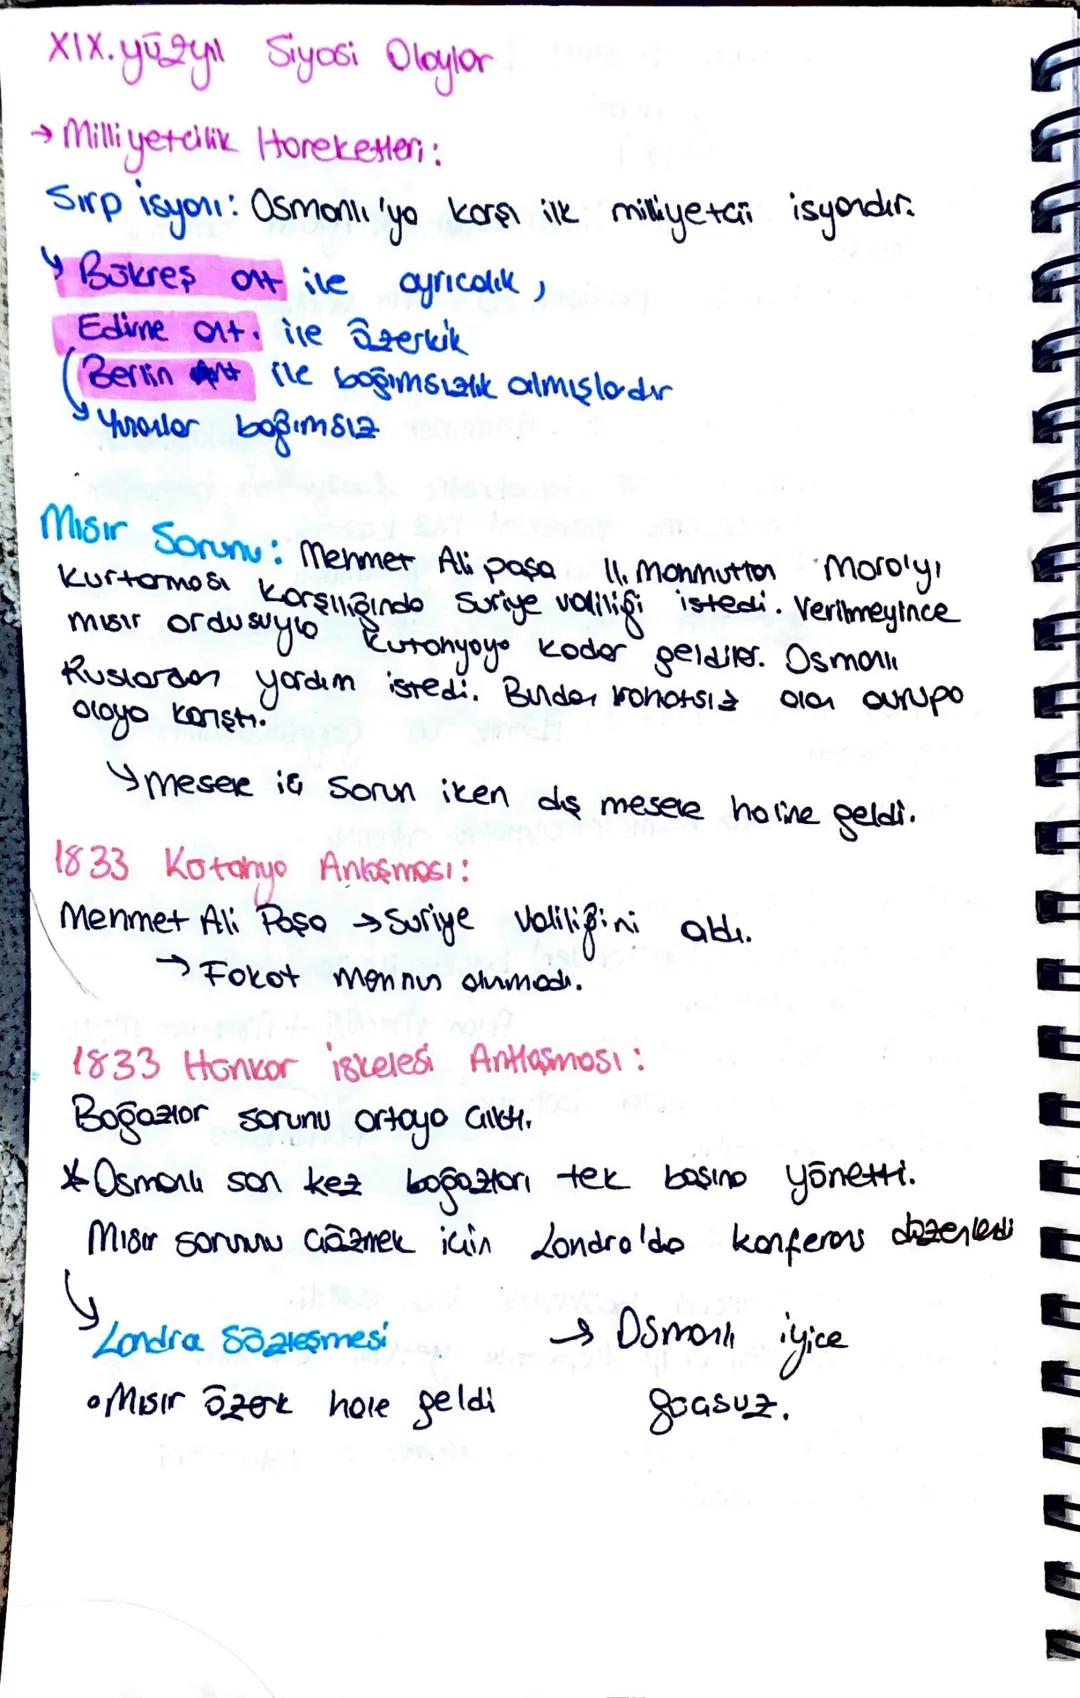 XIX. yüzyıl Siyasi Olaylar
→ Milliyetcilik Hareketleri:
Sırp isyanı: Osmanlı'ya karşı ilk milliyetçi isyandır.
↳ Bükreş ant ile ayrıcalık,
Edirne ant. ile özerklik
Berlin ant ile bağımsızlık almışlardır
↳ Yunanlar bağımsız
Mısır Sorunu: Mehmet Ali paşa II. Mahmuttan Mora'yı
kurtarması karşılığında Suriye valiliği istedi. Verilmeyince
mısır ordusuyla Kütahyaya kadar geldiler. Osmanlı
Ruslardan yardım istedi. Bundan rahatsız olan avrupa
olaya karıştı.
↳ mesele iç sorun iken dış mesele haline geldi.
1833 Kütahya Antlaşması:
Mehmet Ali Paşa → Suriye Valiliğini aldı.
→ Fakat memnun olunmadı.
1833 Hünkar iskelesi Antlaşması:
Boğazlar sorunu ortaya çıktı.
* Osmanlı son kez boğazları tek başına yönetti.
Mısır sorununu çözmek için Londra'da konferans düzenlendi
↳ Londra Sözleşmesi → Osmanlı iyice
• Mısır özerk hale geldi güçsüz.